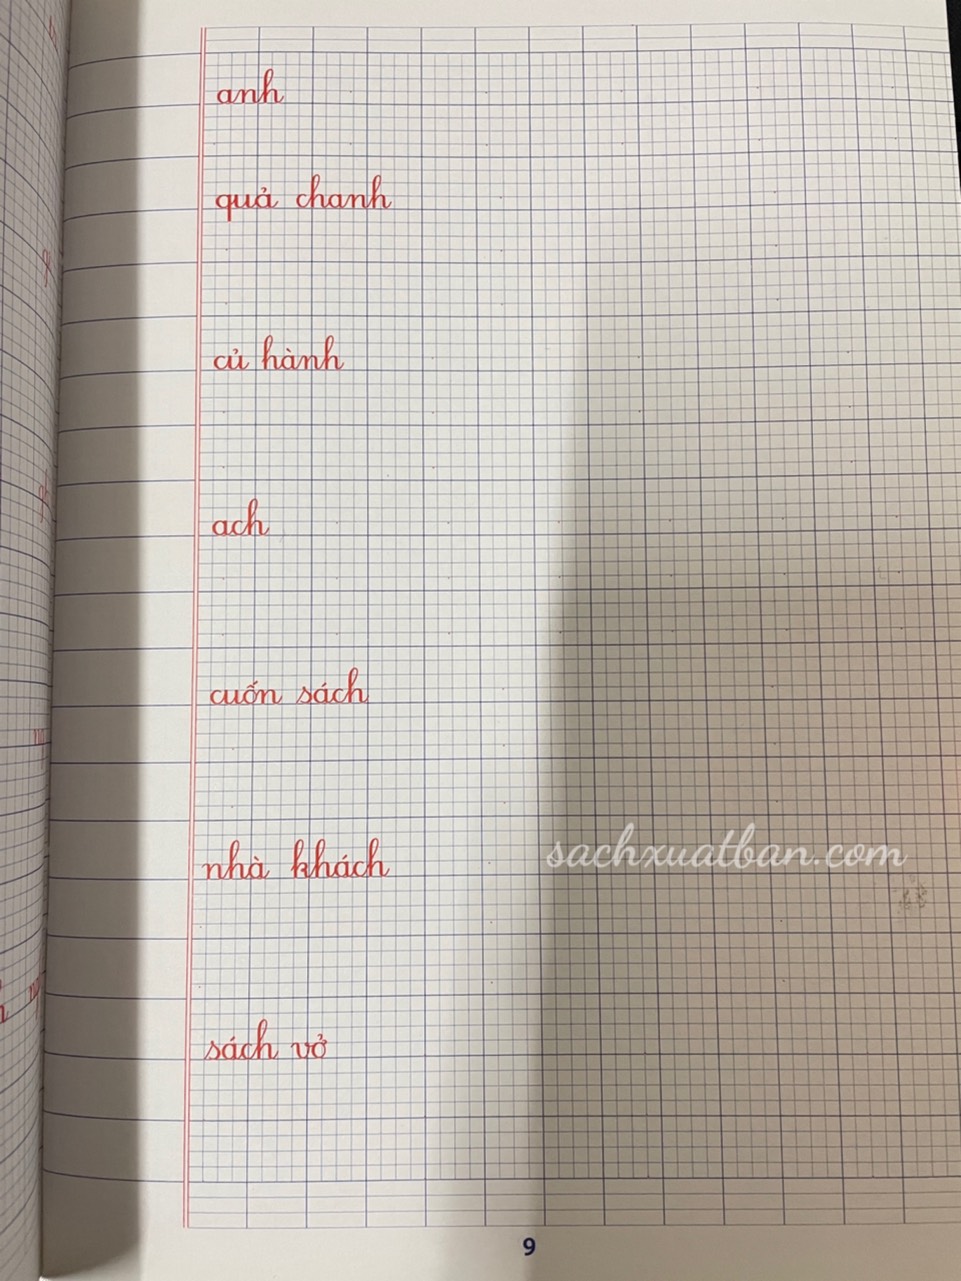 anh
quả chanh
củ hành
ach
cuốn sách
nhà khách
sachxuatban.com
sách vở
9